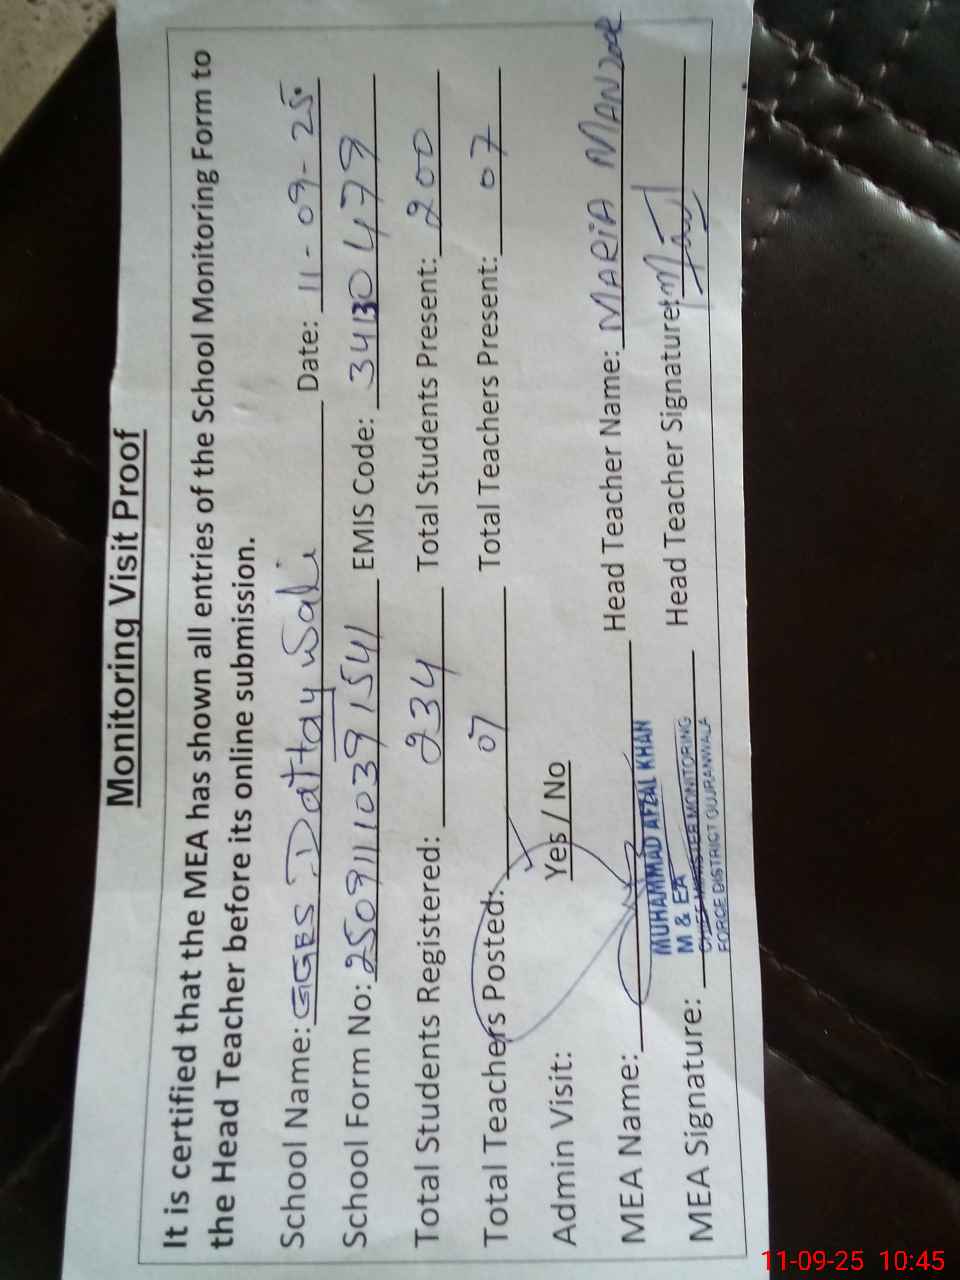 Monitoring Visit Proof
It is certified that the MEA has shown all entries of the School Monitoring Form to
the Head Teacher before its online submission.
School Name: GGES Dattay Wali Date: 11-09-25
School Form No: 25091110391541 EMIS Code: 34130479
Total Students Registered: 234 Total Students Present: 200
Total Teachers Posted: 07 Total Teachers Present: 07
Admin Visit: Yes / No
MEA Name: Head Teacher Name: MARIA MANZOOR
MUHAMMAD AFZAL KHAN
MEA Signature: M & EA Head Teacher Signature:
CHIEF MINISTER MONITORING
FORCE DISTRICT GUJRANWALA
11-09-25 10:45